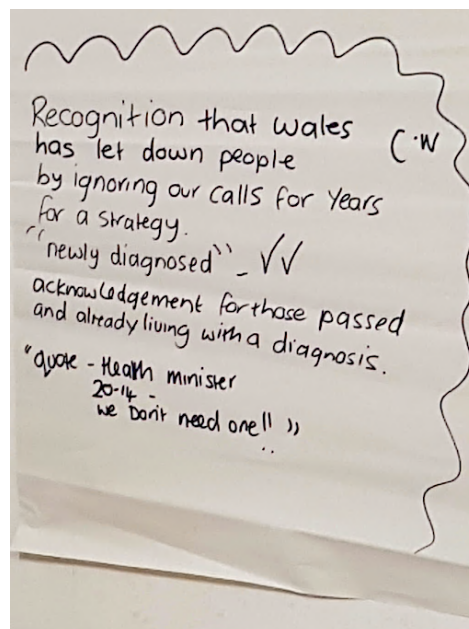 Recognition that wales
has let down people
C.W
by ignoring our calls for years
for a strategy.
"newly diagnosed" - ✓✓
acknowledgement for those passed
and already living with a diagnosis.
"quote - Health minister
20-14 -
we Don't need one!! "